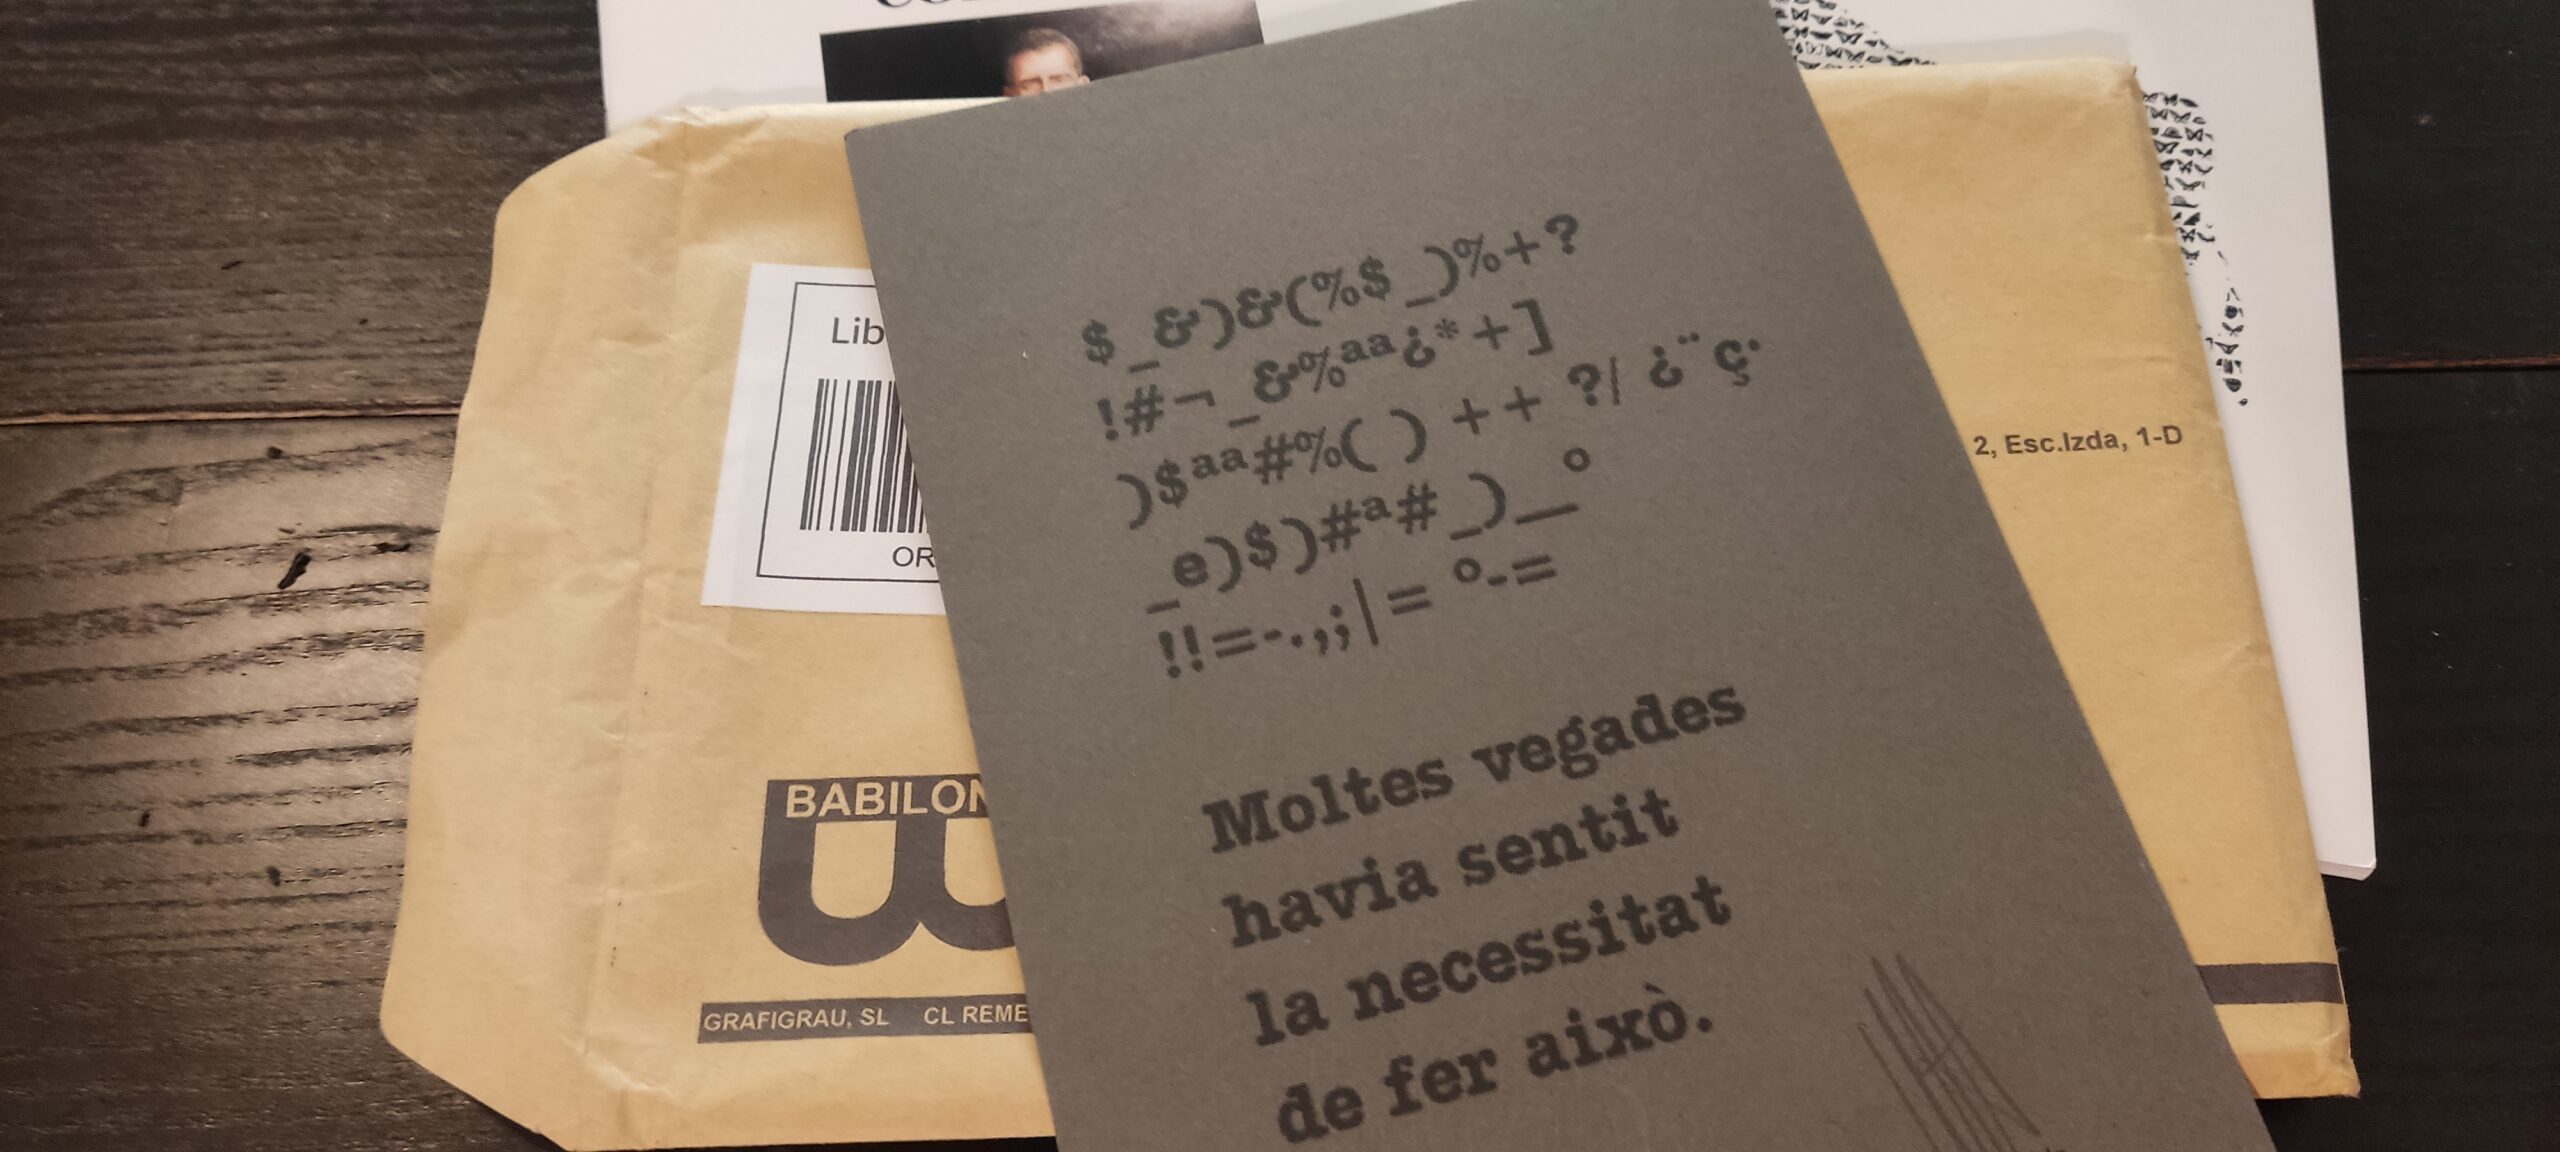 Lib
OR
2, Esc.Izda, 1-D
$_&)&(%$_)%+?
!#¬_&%ªª¿*+]
)$ªª#%( ) ++ ?| ¿¨ç·
_e)$)#ª#_)__º
!!=-.,;|= º-=
Moltes vegades
havia sentit
la necessitat
de fer això.
BABILON
B
GRAFIGRAU, SL CL REME